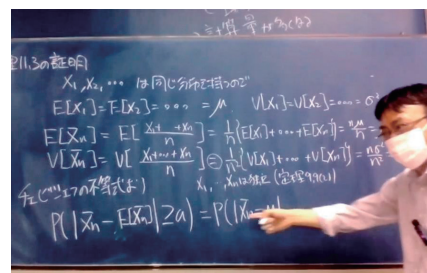 言十算量が多くなる
理11.3の証明
X₁, X₂, ・・・ は同じ分布を持つので
E[X₁] = E[X₂] = ・・・ = μ. V[X₁] = V[X₂] = ・・・ = σ²
E[X̄n] = E[ (X₁+・・・+Xn)/n ] = 1/n {E[X₁]+・・・+E[Xn]} = nμ/n =
V[X̄n] = V[ (X₁+・・・+Xn)/n ] = 1/n² {V[X₁]+・・・+V[Xn]} = nσ²/n²
X₁, ・・・, Xnは独立 (定理
チェビシェフの不等式より
P(|X̄n − E[X̄n]| ≧ a) = P(|X̄n − μ|